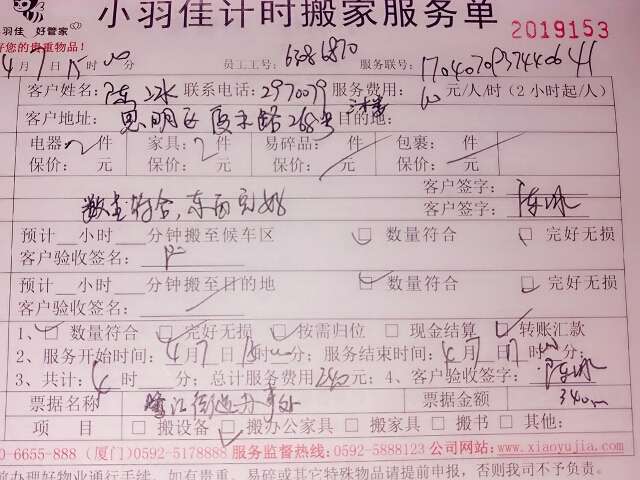 小羽佳计时搬家服务单
羽佳 好管家
2019153
好您的贵重物品!
4月7日15时00分 员工工号: 服务联号:
客户姓名:陈冰 联系电话:2970079 服务费用:60元/人/时(2小时起/人)
客户地址:思明区厦禾路268号 目的地:
电器:2件 家具:2件 易碎品: 件 包裹: 件
保价: 元 保价: 元 保价: 元 保价: 元
客户签字:
数量符合,东西完好 客户签字:陈冰
预计 小时 分钟搬至候车区 ☑数量符合 ☑完好无损
客户验收签名:
预计 小时 分钟搬至目的地 ☑数量符合 ☑完好无损
客户验收签名:
1、☑数量符合 ☑完好无损 ☑按需归位 □现金结算 ☑转账汇款
2、服务开始时间:4月7日15时00分;服务结束时间:4月7日17时 分;
3、共计:4时 分;总计服务费用240元;4、客户验收签字:陈冰
票据名称 鹭江街道办事处 票据金额 340
项 目 □搬设备 ☑搬办公家具 □搬家具 □搬书 □其他:
0-6655-888 (厦门)0592-5178888 服务监督热线:0592-5888123 公司网站:www.xiaoyujia.com
前办理好物业通行手续。如有贵重、易碎或其它特殊物品请提前申报,否则我司不予负责。